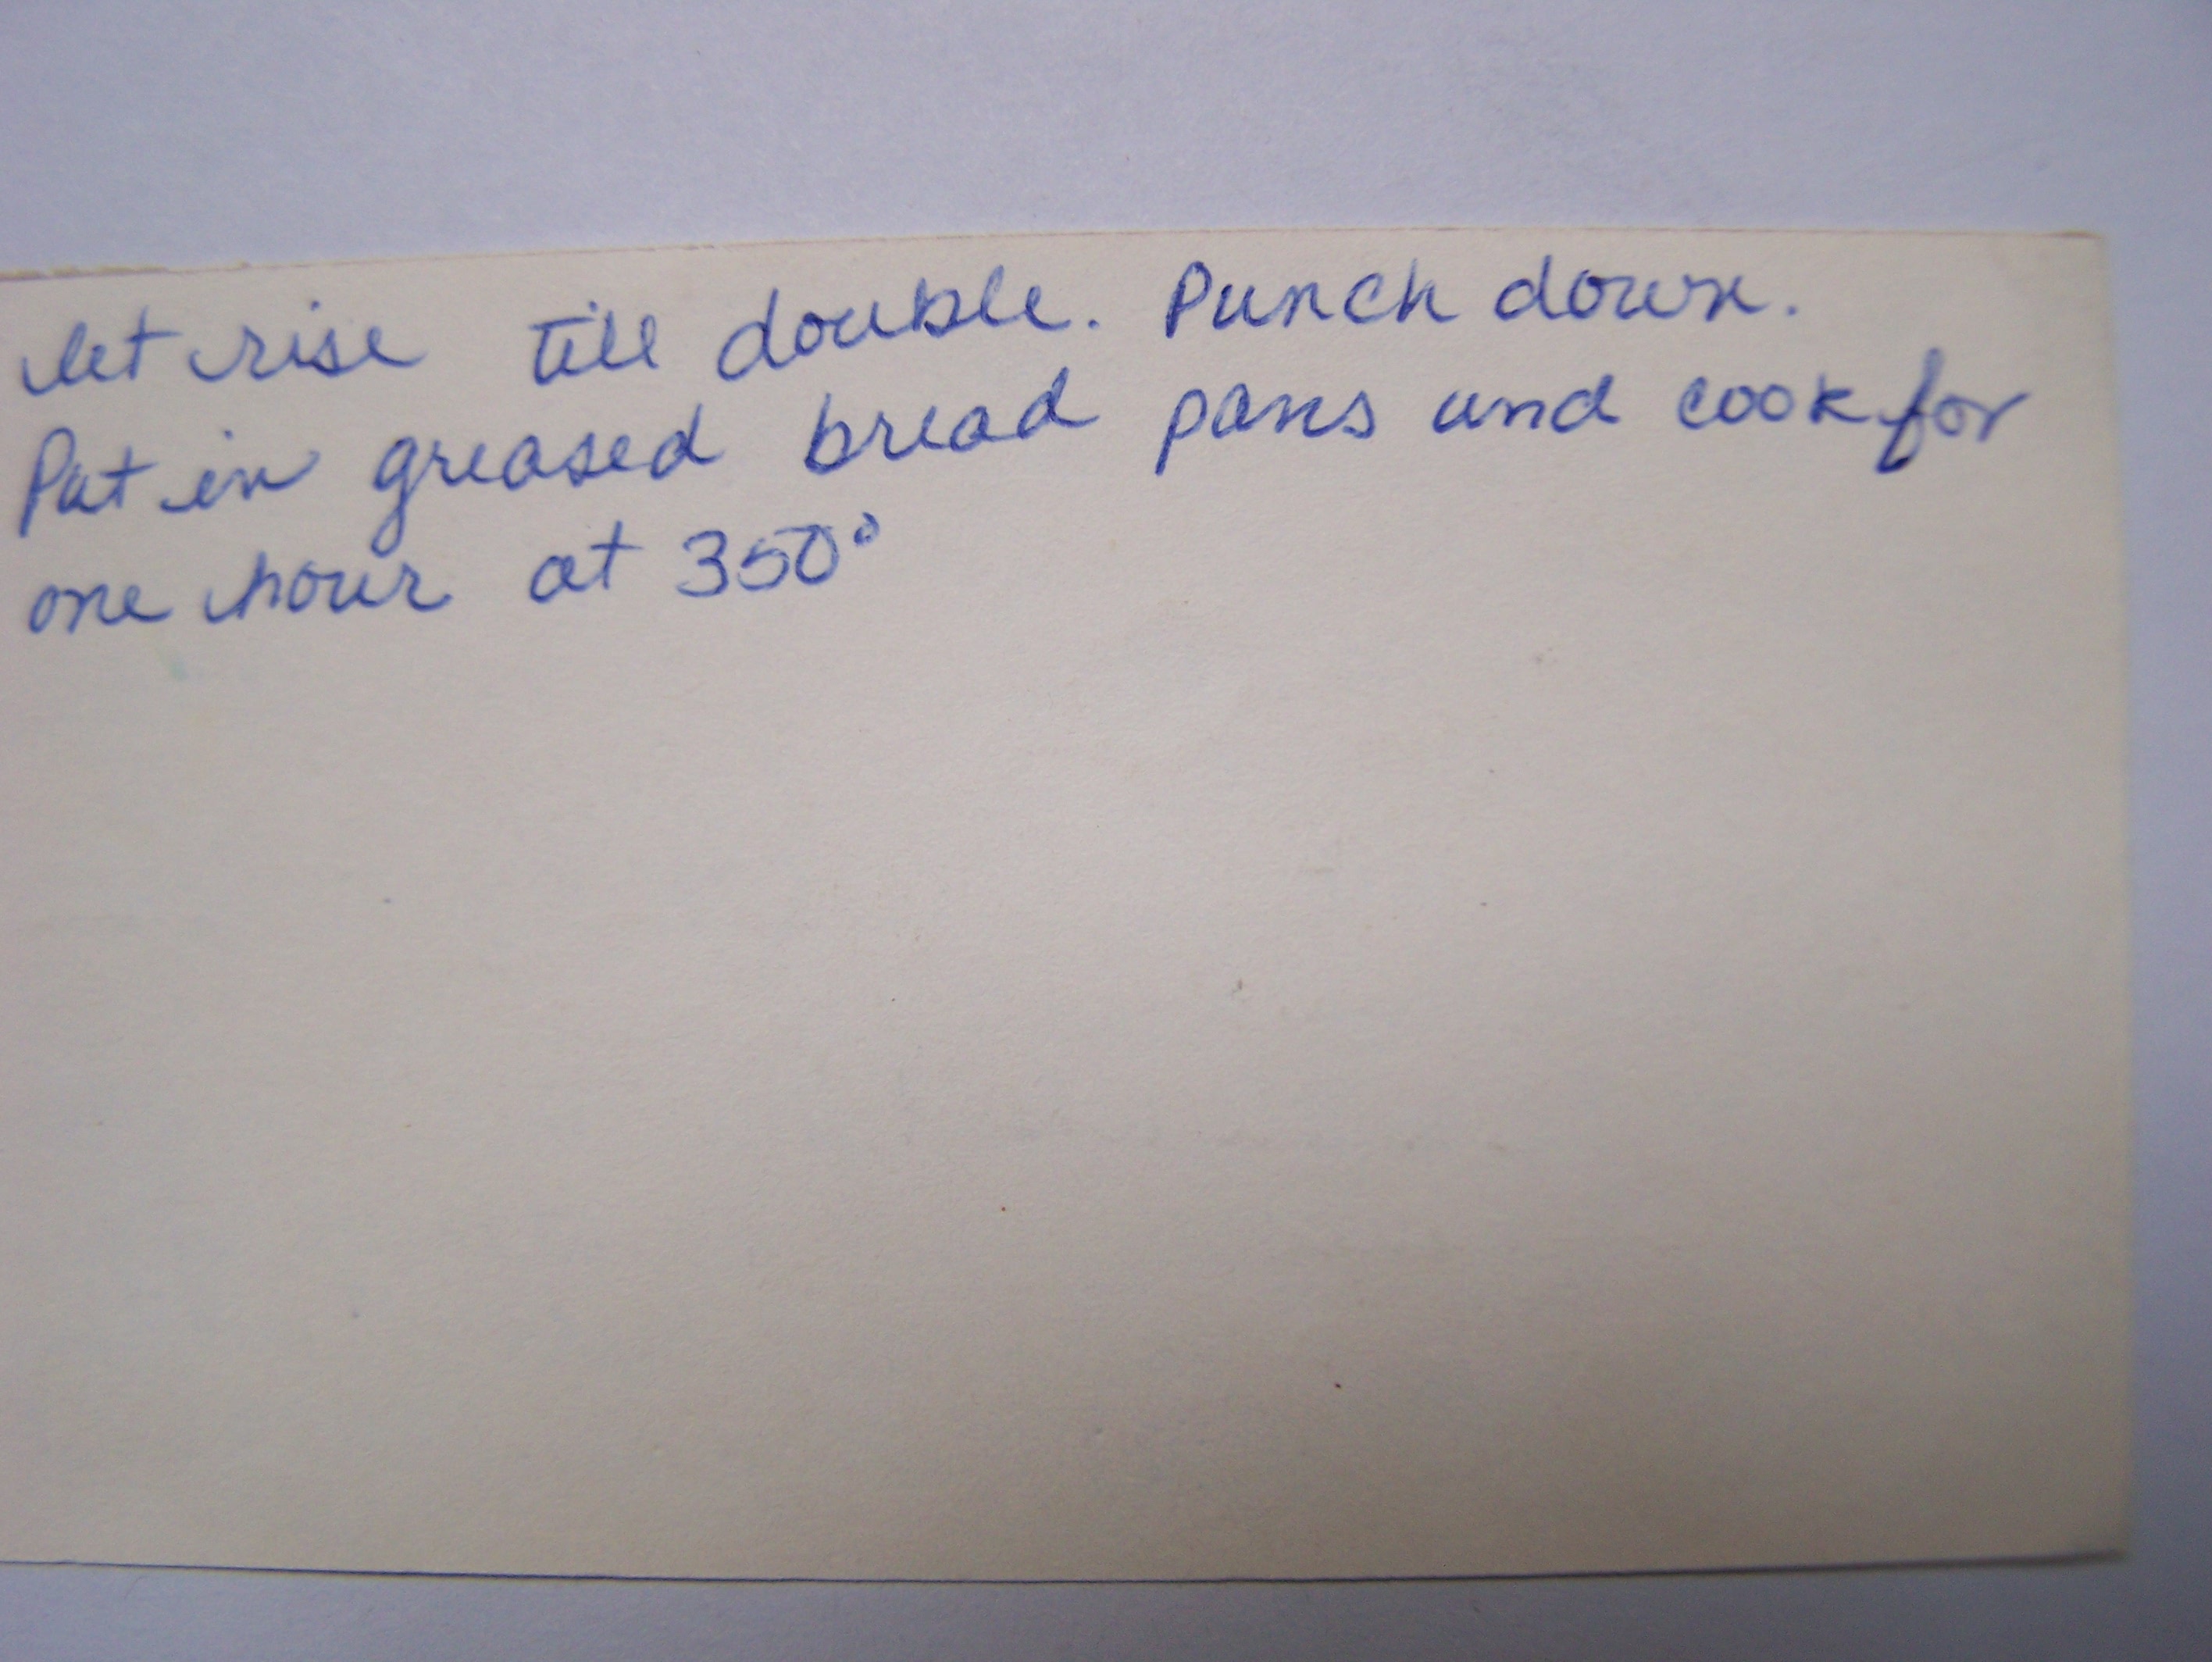 let rise till double. Punch down.
Put in greased bread pans and cook for
one hour at 350°